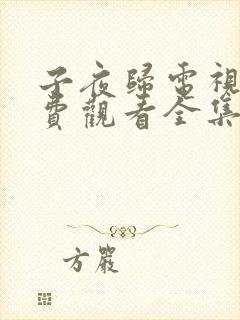 子夜歸電視
費觀看全集
方嚴